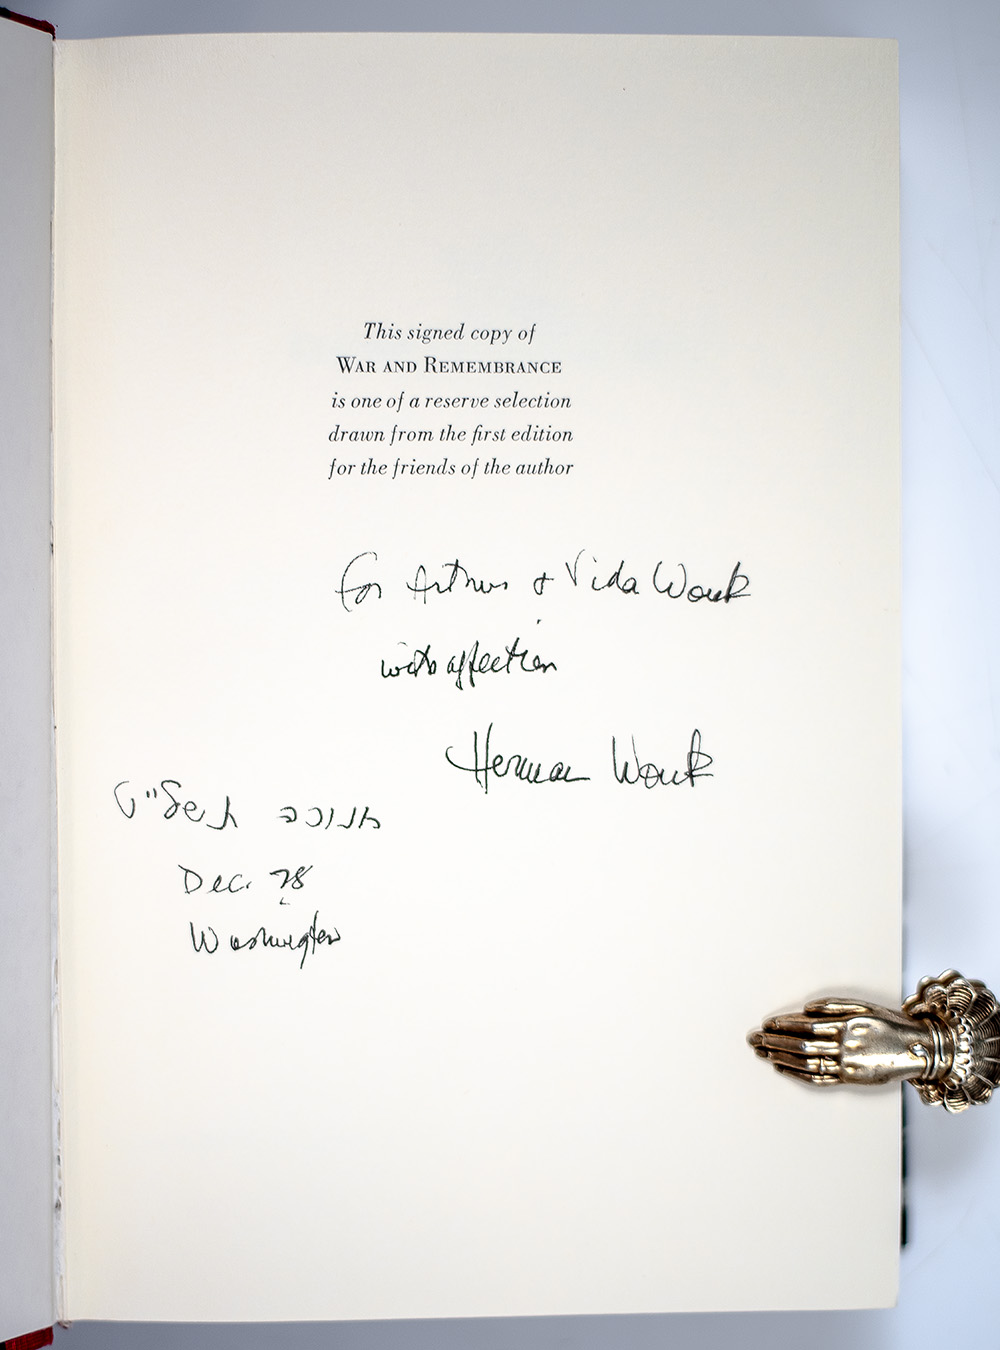 This signed copy of
WAR AND REMEMBRANCE
is one of a reserve selection
drawn from the first edition
for the friends of the author
For Arthur + Vida Wouk
with affection
Herman Wouk
חנוכה תשל"ט
Dec. 78
Washington